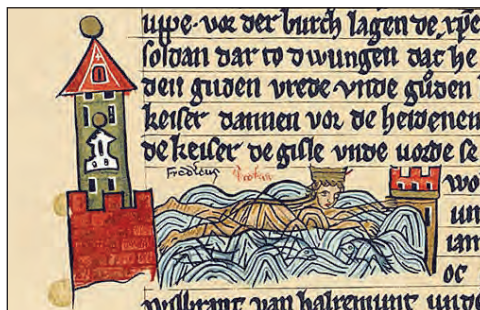 uppe· vor der burch lagen de
soldan dar to dwungen dat he
den guden vrede· vnde guden
keiser dannen vor de heidenen
de keiser de gisle vnde vorde se
Fredicus
wo
un
iam
oc
wilbrant van halremunt unde